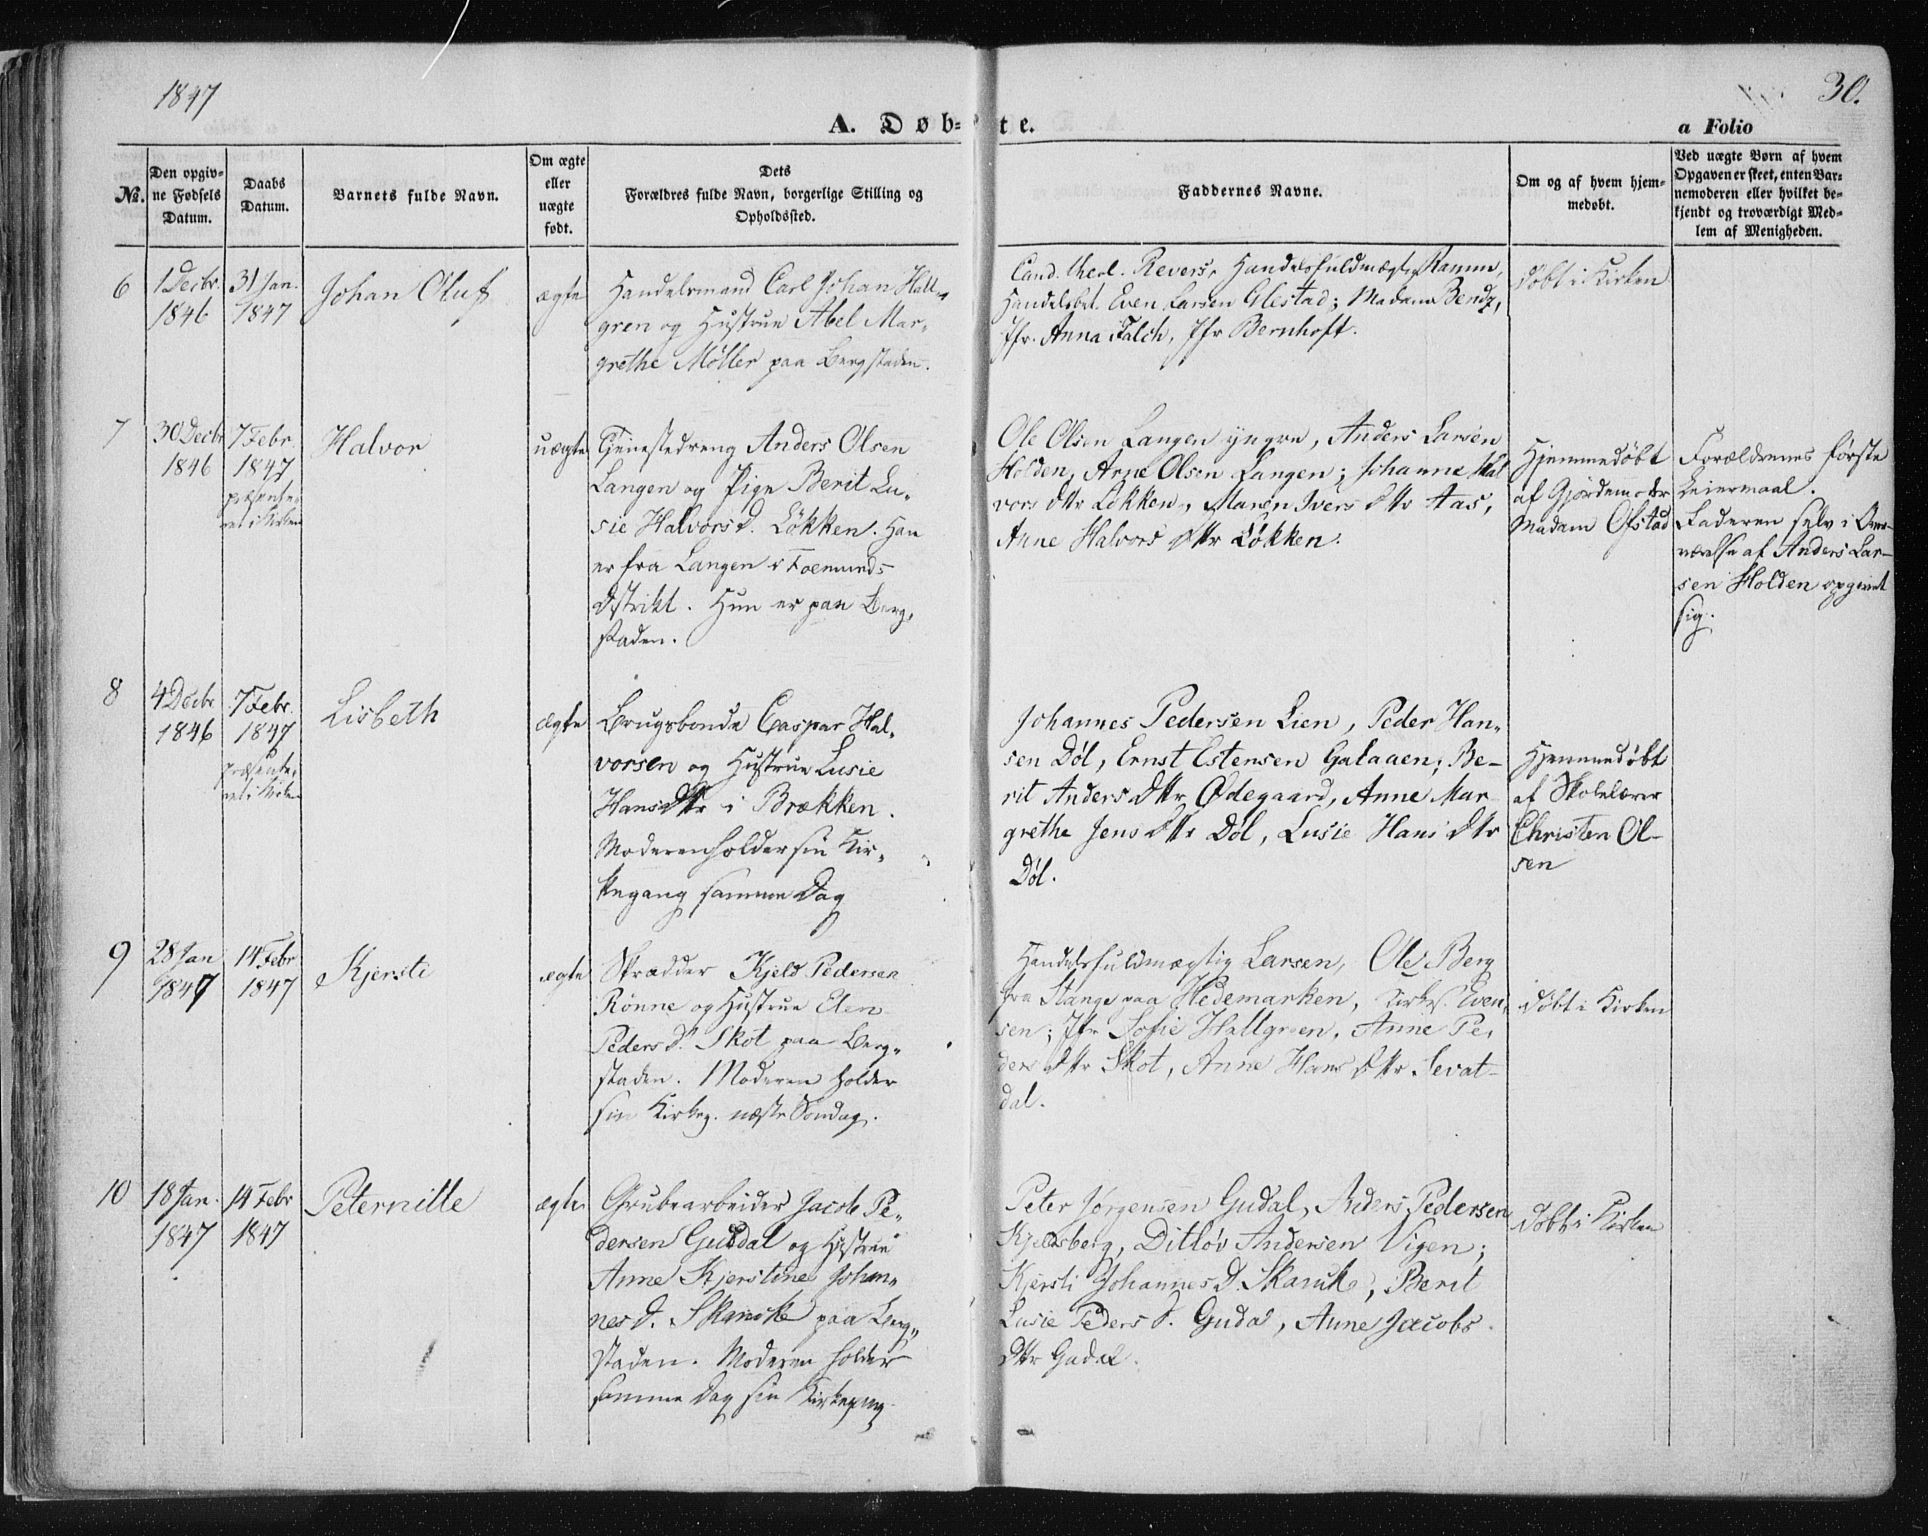 1847
30.
A. Døb- te.
a Folio
No.
Den opgiv-
ne Fødsels
Datum.
Daabs
Datum.
Barnets fulde Navn.
Om ægte
eller
uægte
født.
Dets
Forældres fulde Navn, borgerlige Stilling og
Opholdssted.
Faddernes Navne.
Om og af hvem hjem-
medøbt.
Ved uægte Børn af hvem
Opgaven er skeet, enten Bar-
nemoderen eller hvilket be-
kjendt og troværdigt Med-
lem af Menigheden.
6
1 Decbr.
1846
31 Jan.
1847
Johan Oluf
ægte
Handelsmand Carl Johan Hall-
gren og Hustrue Abel Mar-
grethe Møller paa Bergstaden.
Cand. theol. Revers, Handelsfuldmægt. Ramm,
Handelsbet. Even Larsen Glestad; Madam Bendz,
Jfr. Anna Falch, Jfr Bernhoft.
Døbt i Kirken
7
30 Decbr
1846
7 Febr
1847
præsente-
ret i Kirken
Halvor
uægte
Tjenestedreng Anders Olsen
Langen og Pige Berit Lu-
sie Halvorsd. Løkken. Han
er fra Langen i Foemunds
Dstrikt. Hun er paa Berg-
staden.
Ole Olsen Langen yngre, Anders Larsen
Holden, Arne Olsen Langen; Johanne Hal
vors Dttr Løkken, Maren Ivers Dttr Aas,
Anne Halvors Dttr Løkken.
Hjemmedøbt
af Gjordemoder
Madam Ofstad
Forældrenes første
Leiermaal.
Faderen selv i Over-
værelse af Anders Lar-
sen Holden opgivet
sig.
8
4 Decbr
1846
7 Febr.
1847
præsente-
ret i Kirken
Lisbeth
ægte
Brugsbonde Caspar Hal-
vorsen og Hustrue Lusie
Hans Dttr i Brækken.
Moderen holder sin Kir-
kegang samme Dag
Johannes Pedersen Lien, Peder Han-
sen Døl, Ernst Estensen Galaaen; Be-
rit Anders Dttr Ødegaard, Anne Mar-
grethe Jens Dttr Døl, Lusie Hans Dttr
Døl.
Hjemmedøbt
af Skolelærer
Christen Ol-
sen
9
28 Jan
1847
14 Febr
1847
Kjersti
ægte
Skrædder Kjeld Pedersen
Rønne og Hustrue Elen
Peders D. Skot paa Berg-
staden. Moderen holder
sin Kirkeg. næste Søndag.
Handelsfuldmægtig Larsen, Ole Berg
fra Stange paa Hedemarken, Kirkes. Even-
sen; Jfr Sofie Hallgreen, Anne Pe-
ders Dttr Skot, Anne Hans Dttr Sevat-
dal.
Døbt i Kirken
10
18 Jan.
1847
14 Febr
1847
Peternille
ægte
Grubearbeider Jacob Pe-
dersen Guldal og Hustrue
Anne Kjerstine Johan-
nes D. Skancke paa Berg-
staden. Moderen holder
samme Dag sin Kirkegang
Peter Jørgensen Gudal, Anders Pedersen
Kjeldsberg, Ditløv Andersen Vigen;
Kjersti Johannes D. Skanck, Berit
Lusie Peders D. Gudal, Anne Jacobs
Dttr Gudal.
Døbt i Kirken